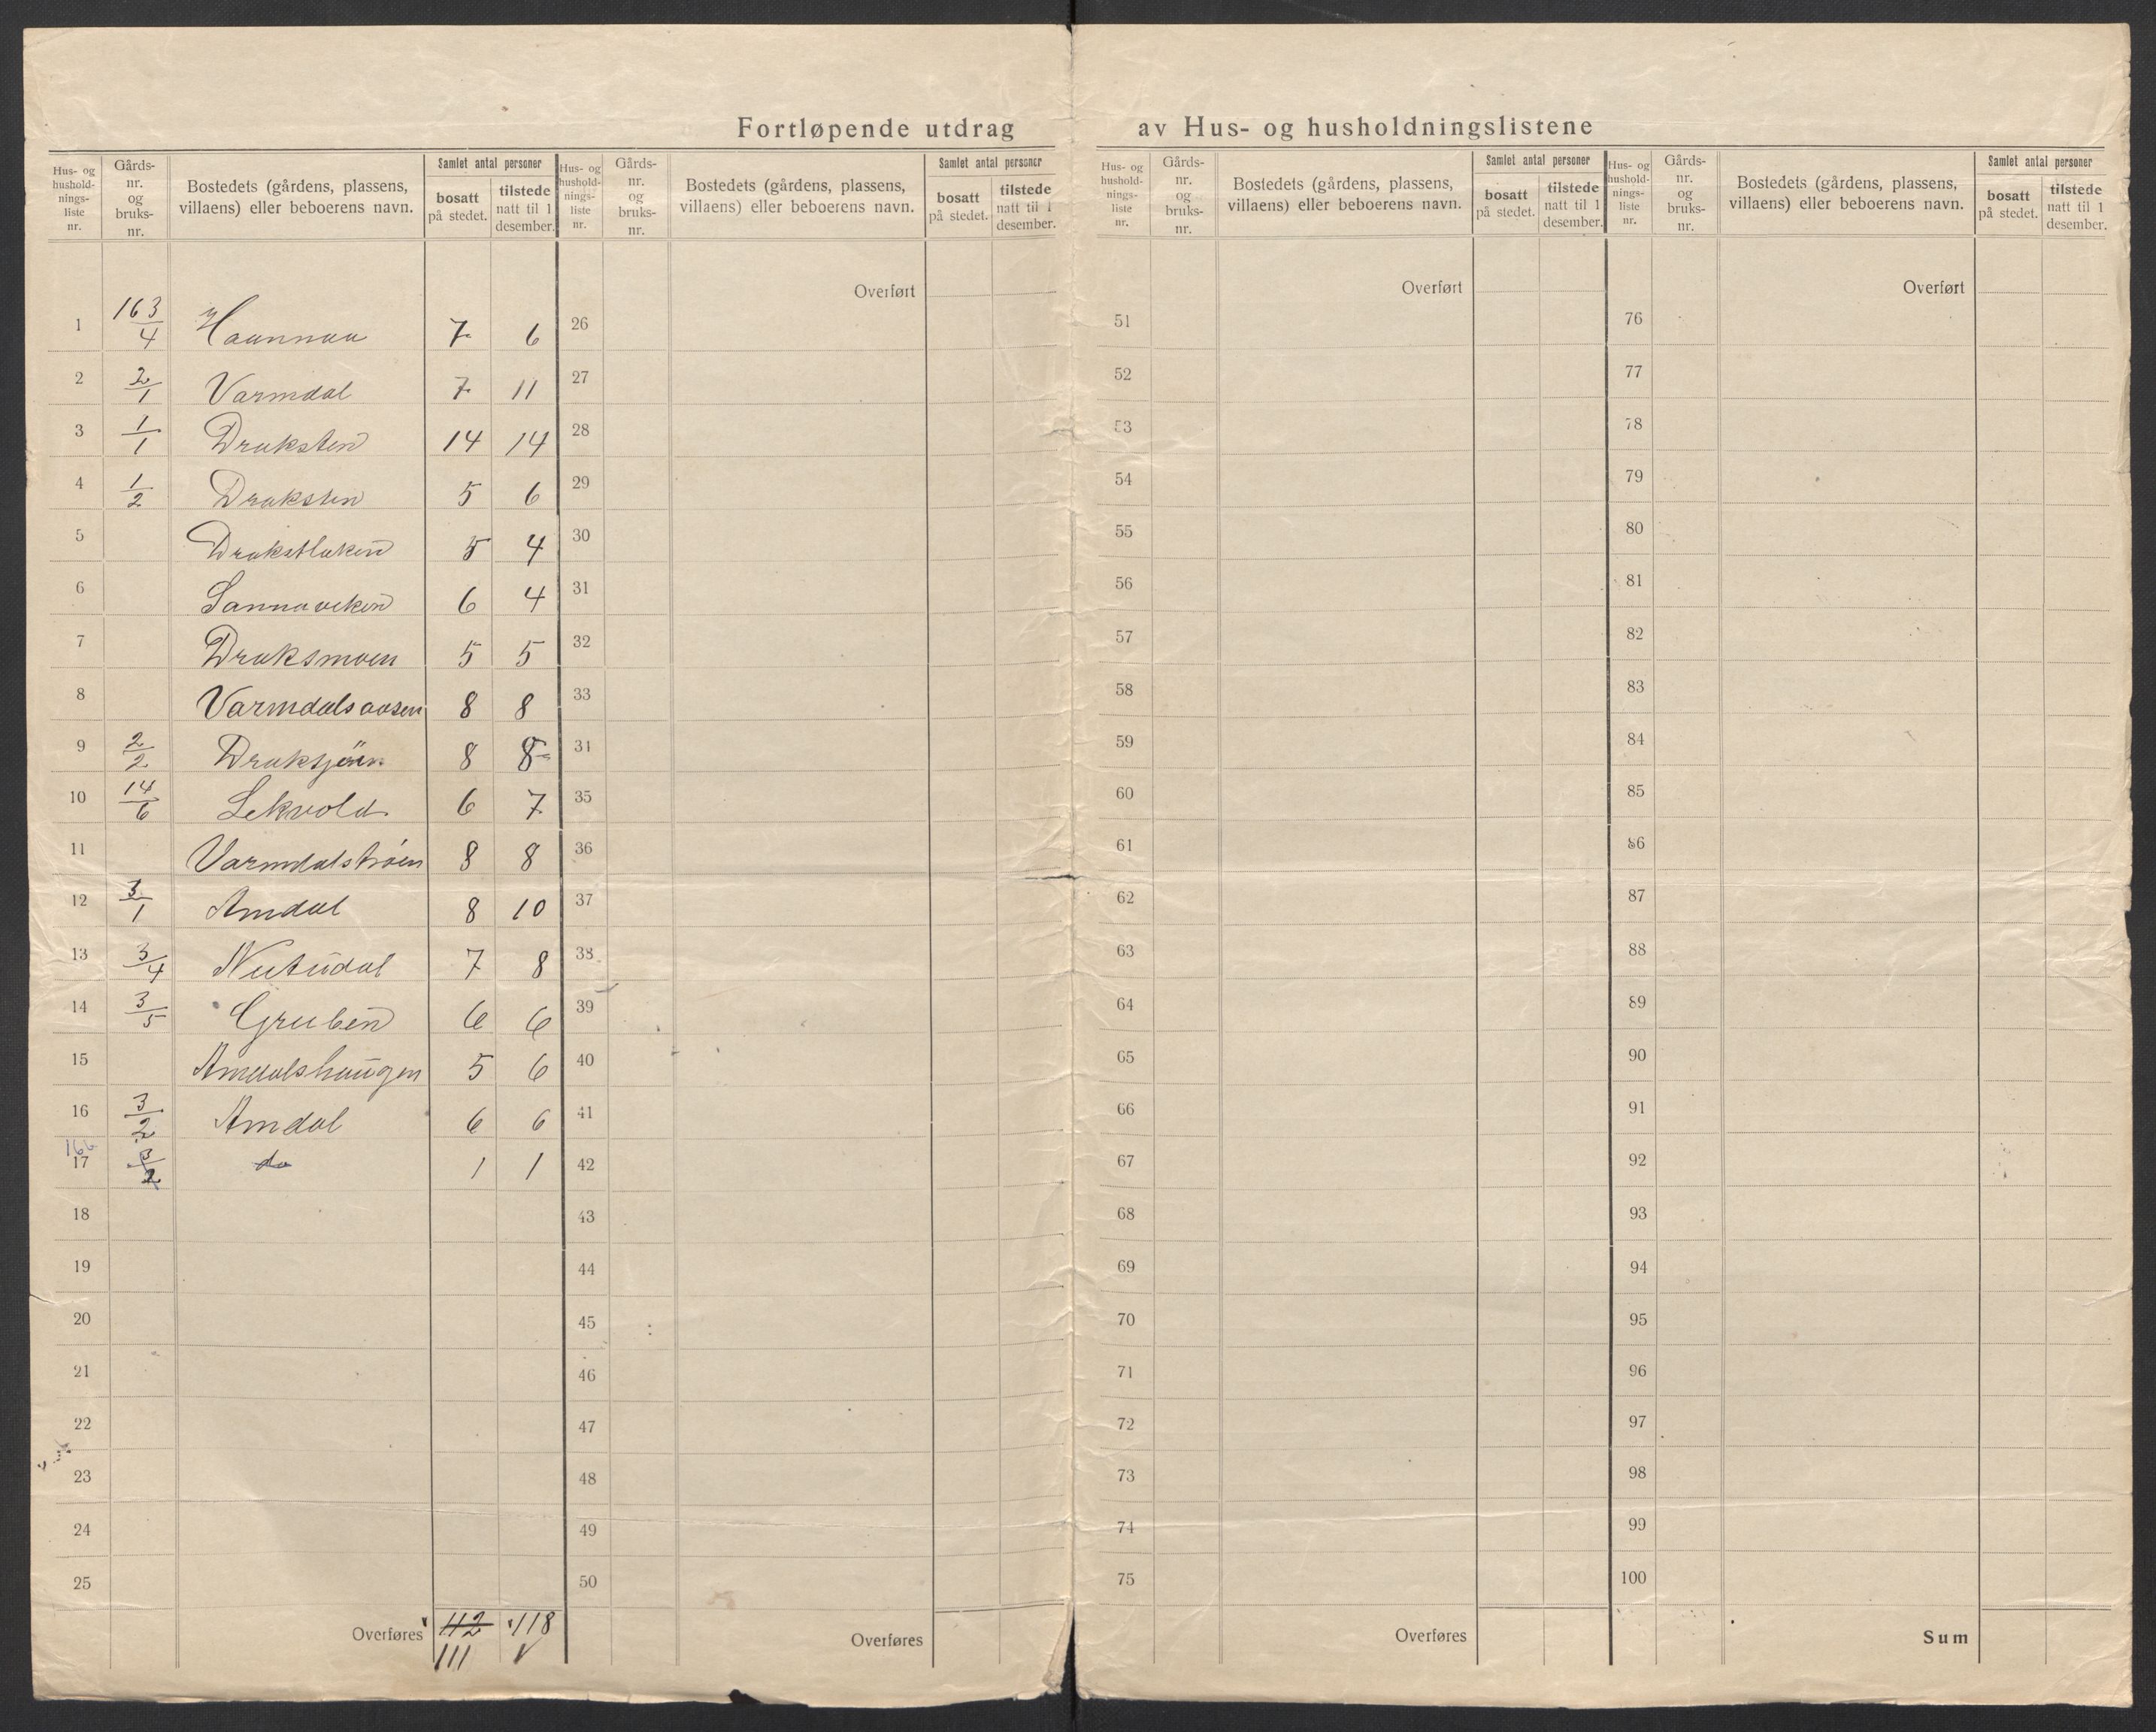 Fortløpende utdrag av Hus- og husholdningslistene
Hus- og hushold-nings-liste nr. | Gårds-nr. og bruks-nr. | Bostedets (gårdens, plassens, villaens) eller beboerens navn. | Samlet antal personer | bosatt på stedet. | tilstede natt til 1 desember.
Hus- og hushold-nings-liste nr. | Gårds-nr. og bruks-nr. | Bostedets (gårdens, plassens, villaens) eller beboerens navn. | Samlet antal personer | bosatt på stedet. | tilstede natt til 1 desember.
Hus- og hushold-nings-liste nr. | Gårds-nr. og bruks-nr. | Bostedets (gårdens, plassens, villaens) eller beboerens navn. | Samlet antal personer | bosatt på stedet. | tilstede natt til 1 desember.
Hus- og hushold-nings-liste nr. | Gårds-nr. og bruks-nr. | Bostedets (gårdens, plassens, villaens) eller beboerens navn. | Samlet antal personer | bosatt på stedet. | tilstede natt til 1 desember.
Overført Overført Overført
1 163/4 Haannaa 7 6 26 51 76
2 2/1 Varmdal 7 11 27 52 77
3 1/1 Draksten 14 14 28 53 78
4 1/2 Draksten 5 6 29 54 79
5 5 4 30 55 80
6 Sannaviken 6 4 31 56 81
7 Draksmoen 5 5 32 57 82
8 Varmdalsaasen 8 8 33 58 83
9 2/2 Draksjøen 8 8 34 59 84
10 14/6 Lekvold 6 7 35 60 85
11 Varmdalstrøen 8 8 36 61 86
12 3/1 Amdal 8 10 37 62 87
13 3/4 7 8 38 63 88
14 3/5 Gruben 6 6 39 64 89
15 Amdalshaugen 5 6 40 65 90
16 3/2 Amdal 6 6 41 66 91
166
17 3/2 do 1 1 42 67 92
18 43 68 93
19 44 69 94
20 45 70 95
21 46 71 96
22 47 72 97
23 48 73 98
24 49 74 99
25 50 75 100
Overføres 112 118 Overføres Overføres Sum
111